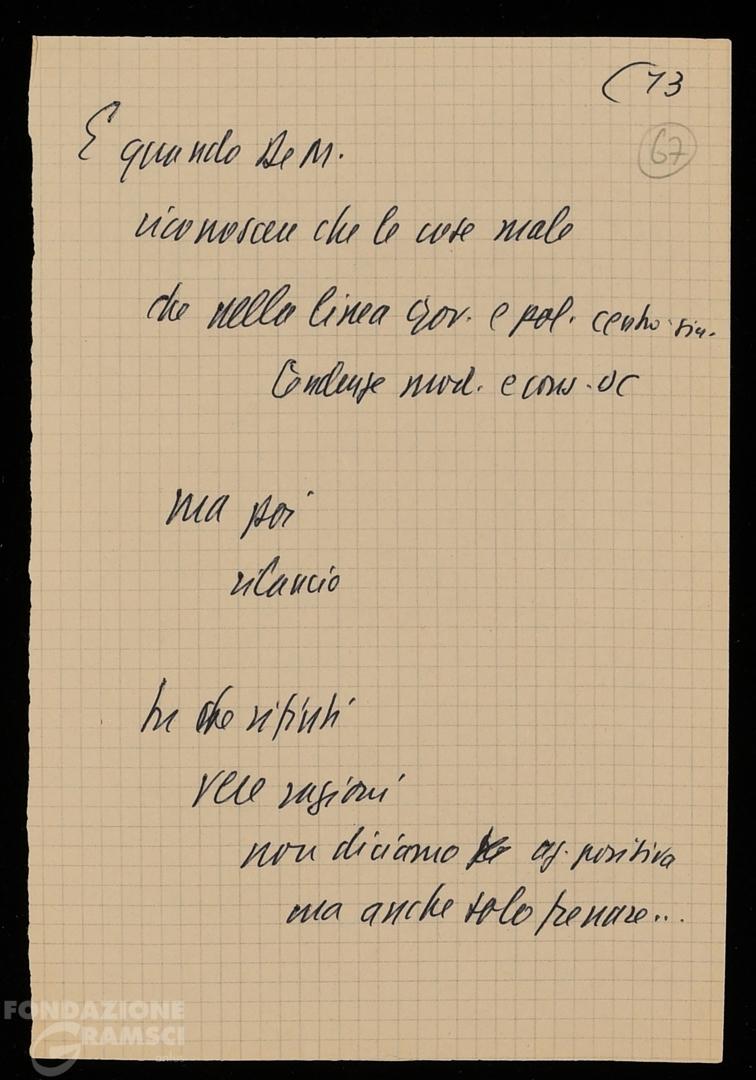 (13
67
E quando De M.
riconosce che le cose male
che nella linea gov. e pol. centro sin.
tendenze mod. e cons. DC
ma poi
rilancio
tu che rifiuti
vere ragioni
non diciamo az. positiva
ma anche solo frenare...
FONDAZIONE
GRAMSCI
onlus